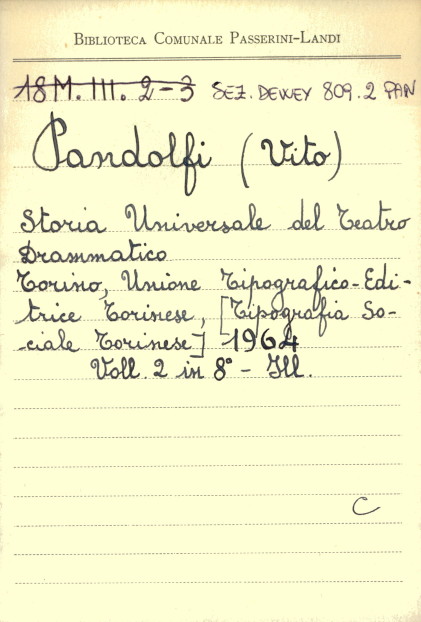 BIBLIOTECA COMUNALE PASSERINI-LANDI
18 M. III. 2-3 SEZ. DEWEY 809.2 PAN
Pandolfi (Vito)
Storia Universale del Teatro
Drammatico
Torino, Unione Tipografico-Edi-
trice Torinese, [Tipografia So-
ciale Torinese] 1964
Voll. 2 in 8° - Ill.
C